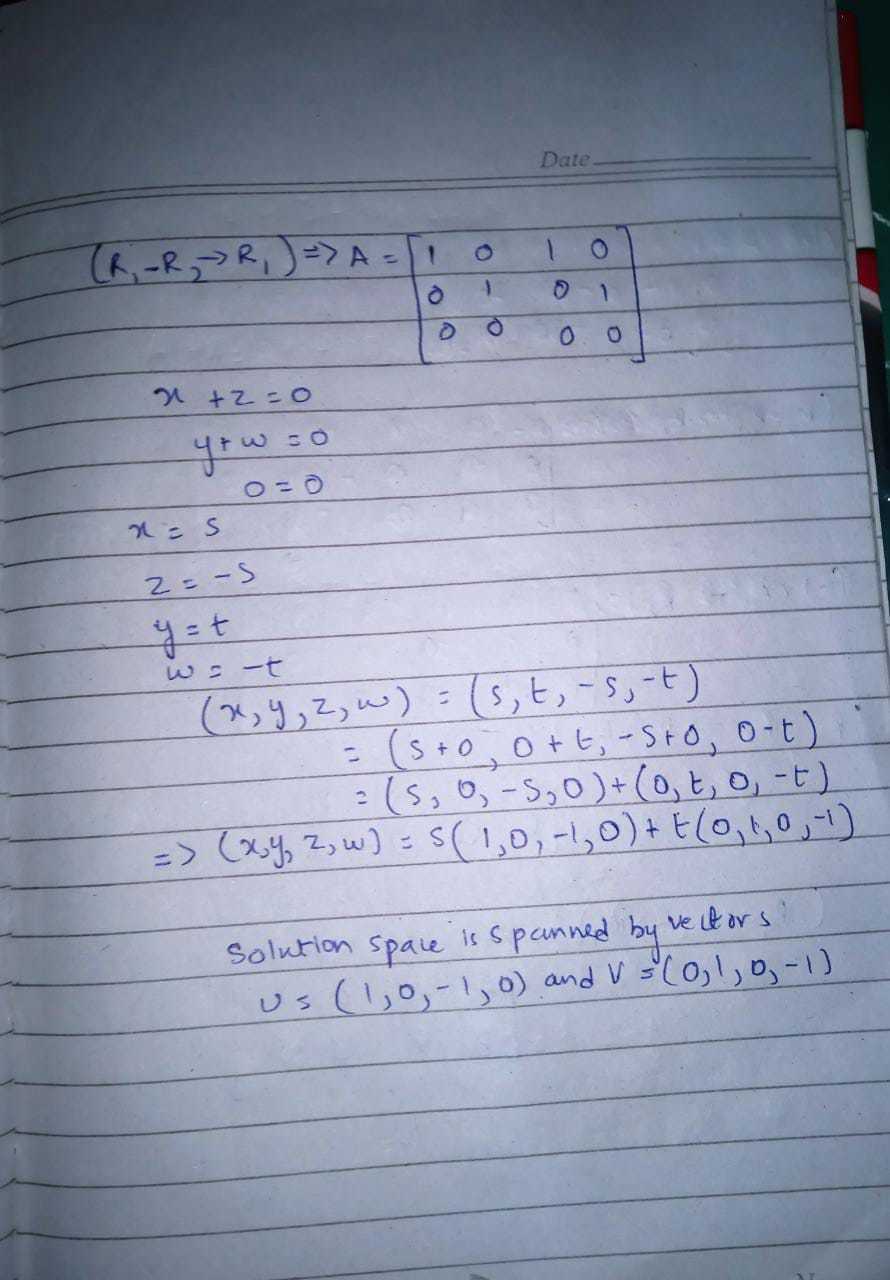 Date
(R₁-R₂→R₁) => A = [1 0 1 0
0 1 0 1
0 0 0 0]
x + z = 0
y + w = 0
0 = 0
x = s
z = -s
y = t
w = -t
(x, y, z, w) = (s, t, -s, -t)
= (s+0, 0+t, -s+0, 0-t)
= (s, 0, -s, 0) + (0, t, 0, -t)
=> (x, y, z, w) = s(1, 0, -1, 0) + t(0, 1, 0, -1)
Solution space is spanned by vectors
U = (1, 0, -1, 0) and V = (0, 1, 0, -1)